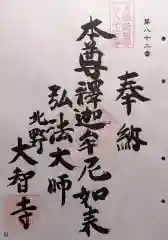 第八十二番
奉納
本尊釋迦牟尼如来
弘法大師
北野
大智寺